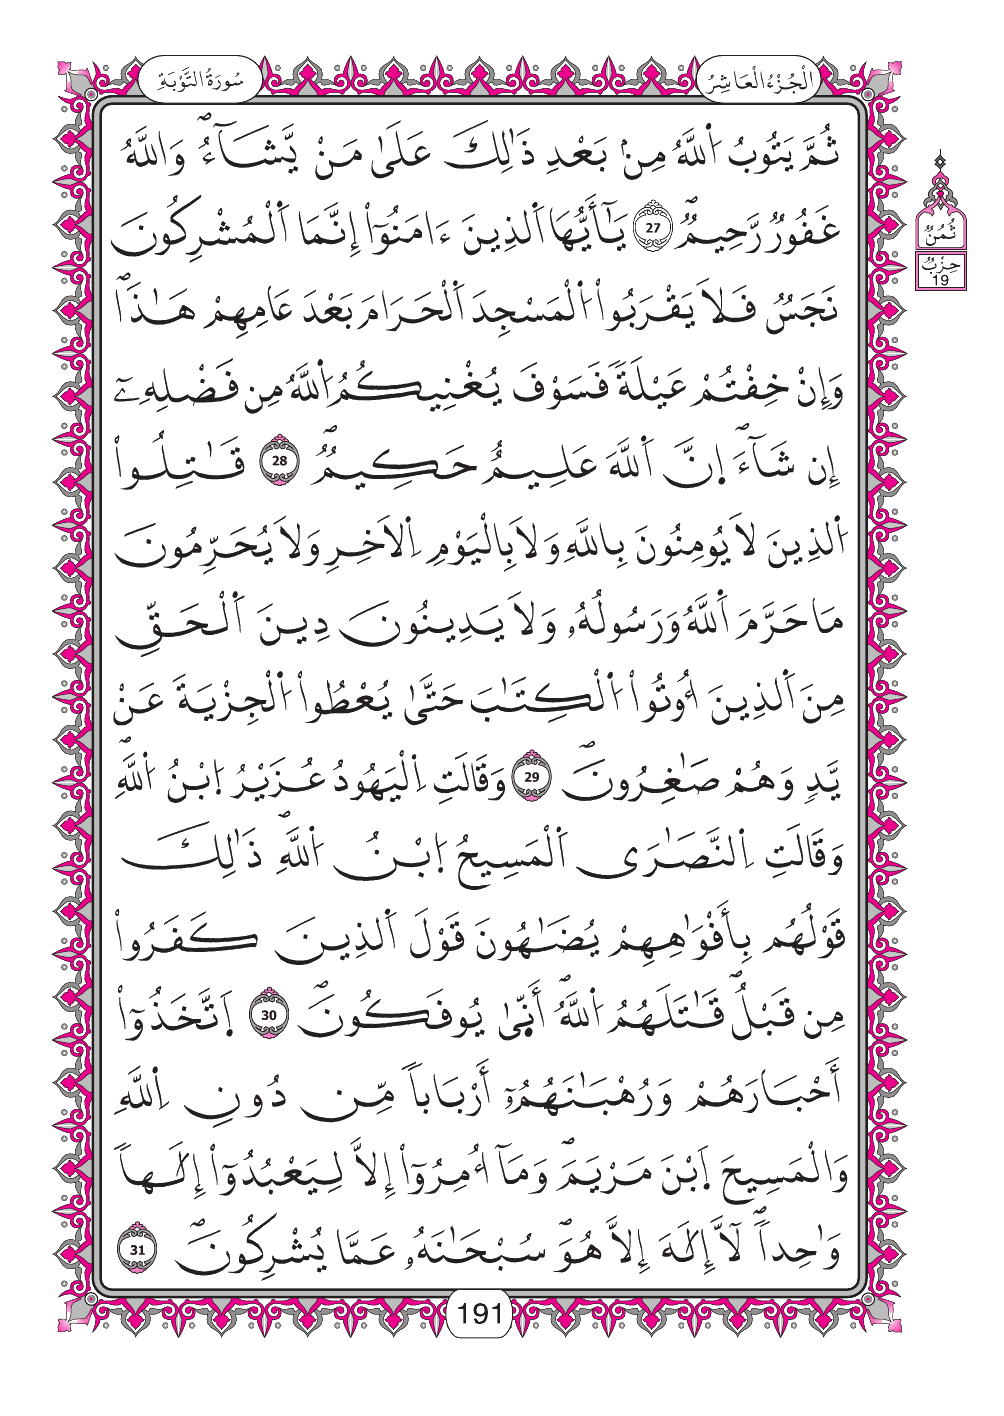 سُورَةُ التَّوْبَةِ
الْجُزْءُ الْعَاشِرُ
ثُمَّ يَتُوبُ اُ۬للَّهُ مِنۢ بَعْدِ ذَٰلِكَ عَلَىٰ مَنْ يَّشَآءُۖ وَاللَّهُ
غَفُورٞ رَّحِيمٞۖ 27 يَٰٓأَيُّهَا اَ۬لذِينَ ءَامَنُوٓاْ إِنَّمَا اَ۬لْمُشْرِكُونَ
ثُمُنٌ
حِزْبٌ
19
نَجَسٞ فَلَا يَقْرَبُواْ اُ۬لْمَسْجِدَ اَ۬لْحَرَامَ بَعْدَ عَامِهِمْ هَٰذَاۖ
وَإِنْ خِفْتُمْ عَيْلَةٗ فَسَوْفَ يُغْنِيكُمُ اُ۬للَّهُ مِن فَضْلِهِۦٓ
إِن شَآءَۖ اِ۪نَّ اَ۬للَّهَ عَلِيمٌ حَكِيمٞۖ 28 قَٰتِلُواْ
اُ۬لذِينَ لَا يُومِنُونَ بِاللَّهِ وَلَا بِالْيَوْمِ اِ۬لَاخِرِ وَلَا يُحَرِّمُونَ
مَا حَرَّمَ اَ۬للَّهُ وَرَسُولُهُۥ وَلَا يَدِينُونَ دِينَ اَ۬لْحَقِّ
مِنَ اَ۬لذِينَ أُوتُواْ اُ۬لْكِتَٰبَ حَتَّىٰ يُعْطُواْ اُ۬لْجِزْيَةَ عَنْ
يَّدٖ وَهُمْ صَٰغِرُونَۖ 29 وَقَالَتِ اِ۬لْيَهُودُ عُزَيْرُ اُ۪بْنُ اُ۬للَّهِۖ
وَقَالَتِ اِ۬لنَّصَٰرَى اَ۬لْمَسِيحُ اُ۪بْنُ اُ۬للَّهِۖ ذَٰلِكَ
قَوْلُهُم بِأَفْوَٰهِهِمْ يُضَٰهُونَ قَوْلَ اَ۬لذِينَ كَفَرُواْ
مِن قَبْلُۖ قَٰتَلَهُمُ اُ۬للَّهُۖ أَنّ۪ىٰ يُوفَكُونَۖ 30 اَ۪تَّخَذُوٓاْ
أَحْبَارَهُمْ وَرُهْبَٰنَهُمُۥٓ أَرْبَاباٗ مِّن دُونِ اِ۬للَّهِ
وَالْمَسِيحَ اَ۪بْنَ مَرْيَمَۖ وَمَآ أُمِرُوٓاْ إِلَّا لِيَعْبُدُوٓاْ إِلَٰهاٗ
وَٰحِداٗۖ لَّآ إِلَٰهَ إِلَّا هُوَۖ سُبْحَٰنَهُۥ عَمَّا يُشْرِكُونَۖ 31
191